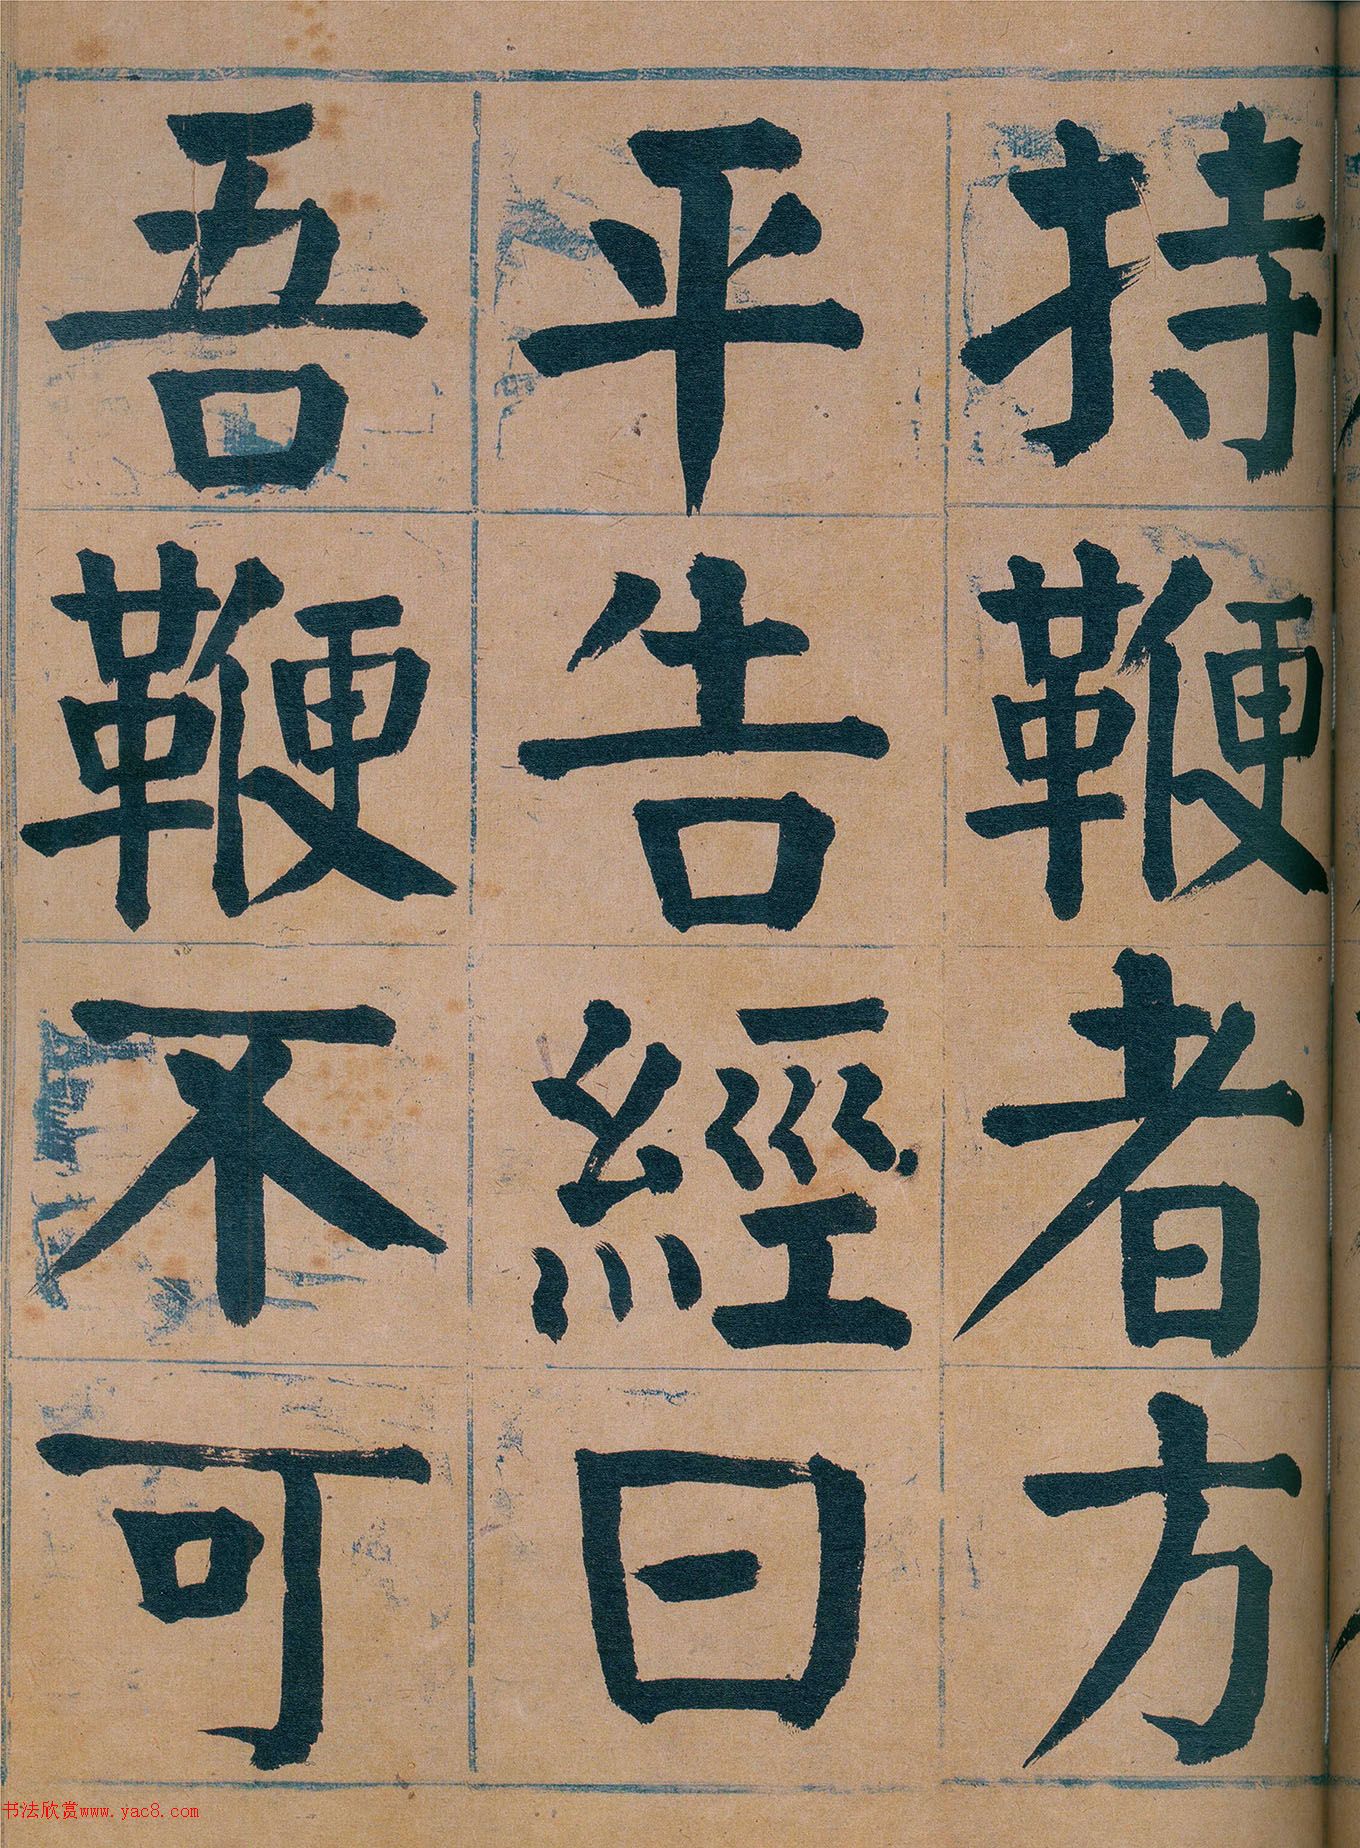 持鞭者方
平告經曰
吾鞭不可
书法欣赏www.yac8.com